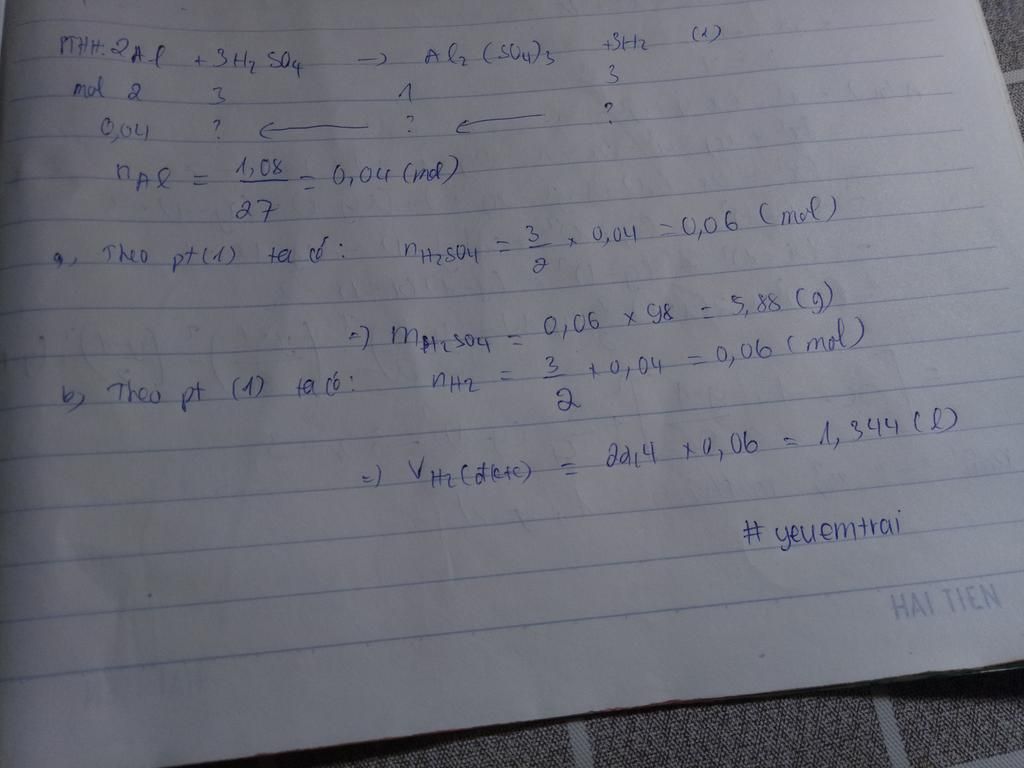 PTHH: 2Al + 3H2SO4 → Al2(SO4)3 +3H2 (1)
mol 2 3 1 3
0,04 ? ← ? ← ?
nAl = 1,08/27 = 0,04 (mol)
a, Theo pt(1) ta có: nH2SO4 = 3/2 × 0,04 = 0,06 (mol)
=) mH2SO4 = 0,06 × 98 = 5,88 (g)
b, Theo pt (1) ta có: nH2 = 3/2 × 0,04 = 0,06 (mol)
=) VH2(đktc) = 22,4 × 0,06 = 1,344 (l)
# yeuemtrai
HAI TIEN